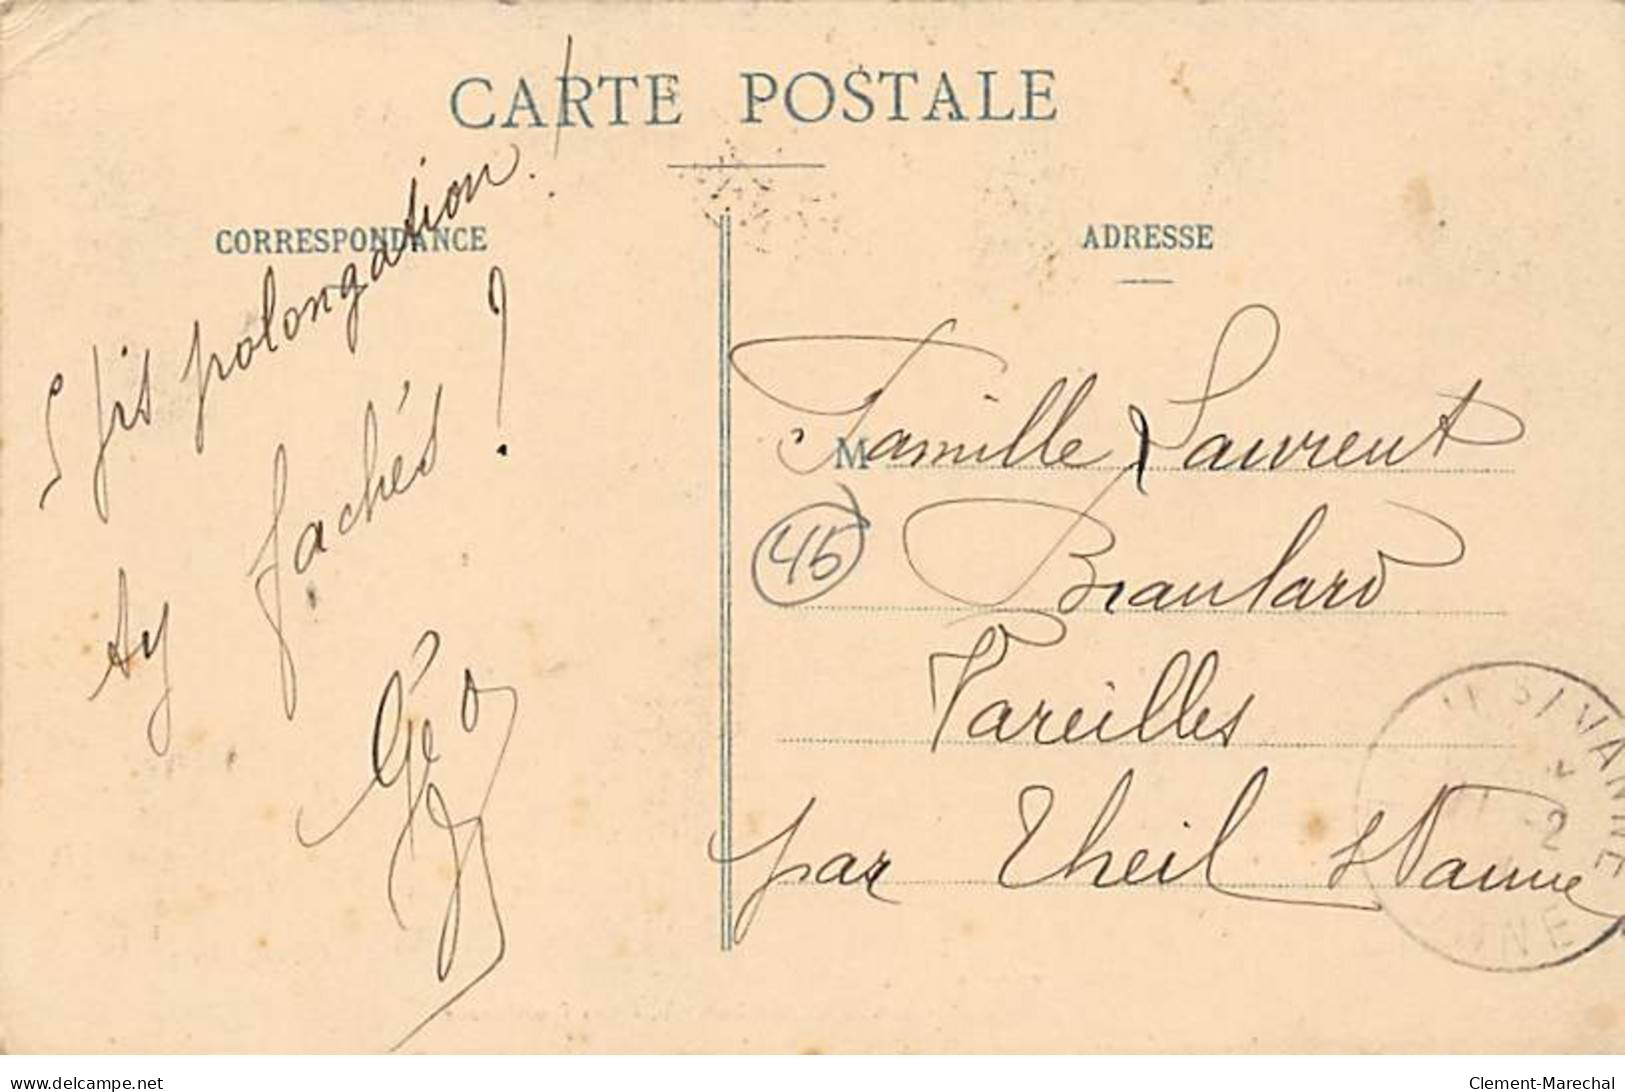 CARTE POSTALE
CORRESPONDANCE
5 fis polongation !
ty fachés ?
Géo
ADRESSE
M Famille Laurent
45
Beaulard
Vareilles
par Theil s/ Vanne
S/ VANNE
2
NNE
www.delcampe.net
Clement-Marechal